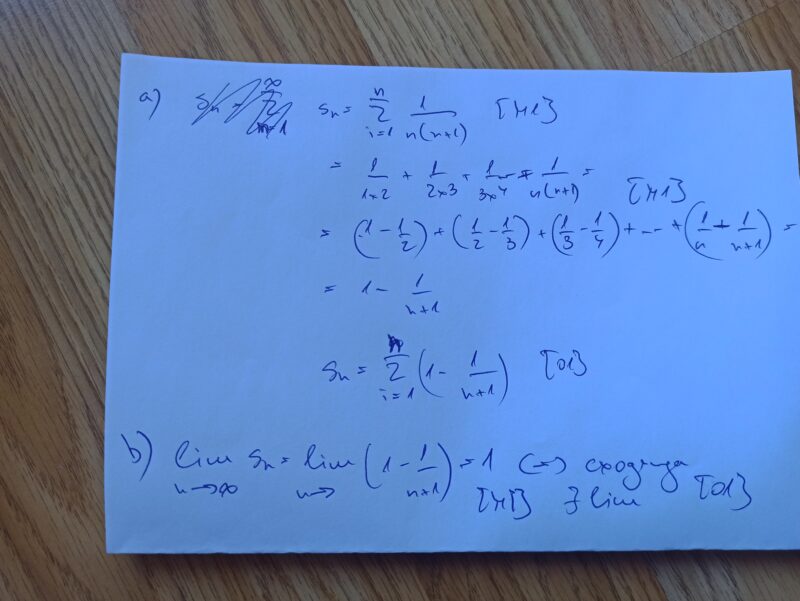 a) sₙ = ∑ i=1 n 1/n(n+1) [M1]
= 1/1×2 + 1/2×3 + 1/3×4 ... + 1/n(n+1) =
[M1]
= (1 - 1/2) + (1/2 - 1/3) + (1/3 - 1/4) + ... + (1/n - 1/n+1) =
= 1 - 1/n+1
Sₙ = ∑ i=1 n (1 - 1/n+1) [O1]
b) lim n→∞ Sₙ = lim n→ (1 - 1/n+1) = 1 (=)
[M1] ∃ lim [O1]